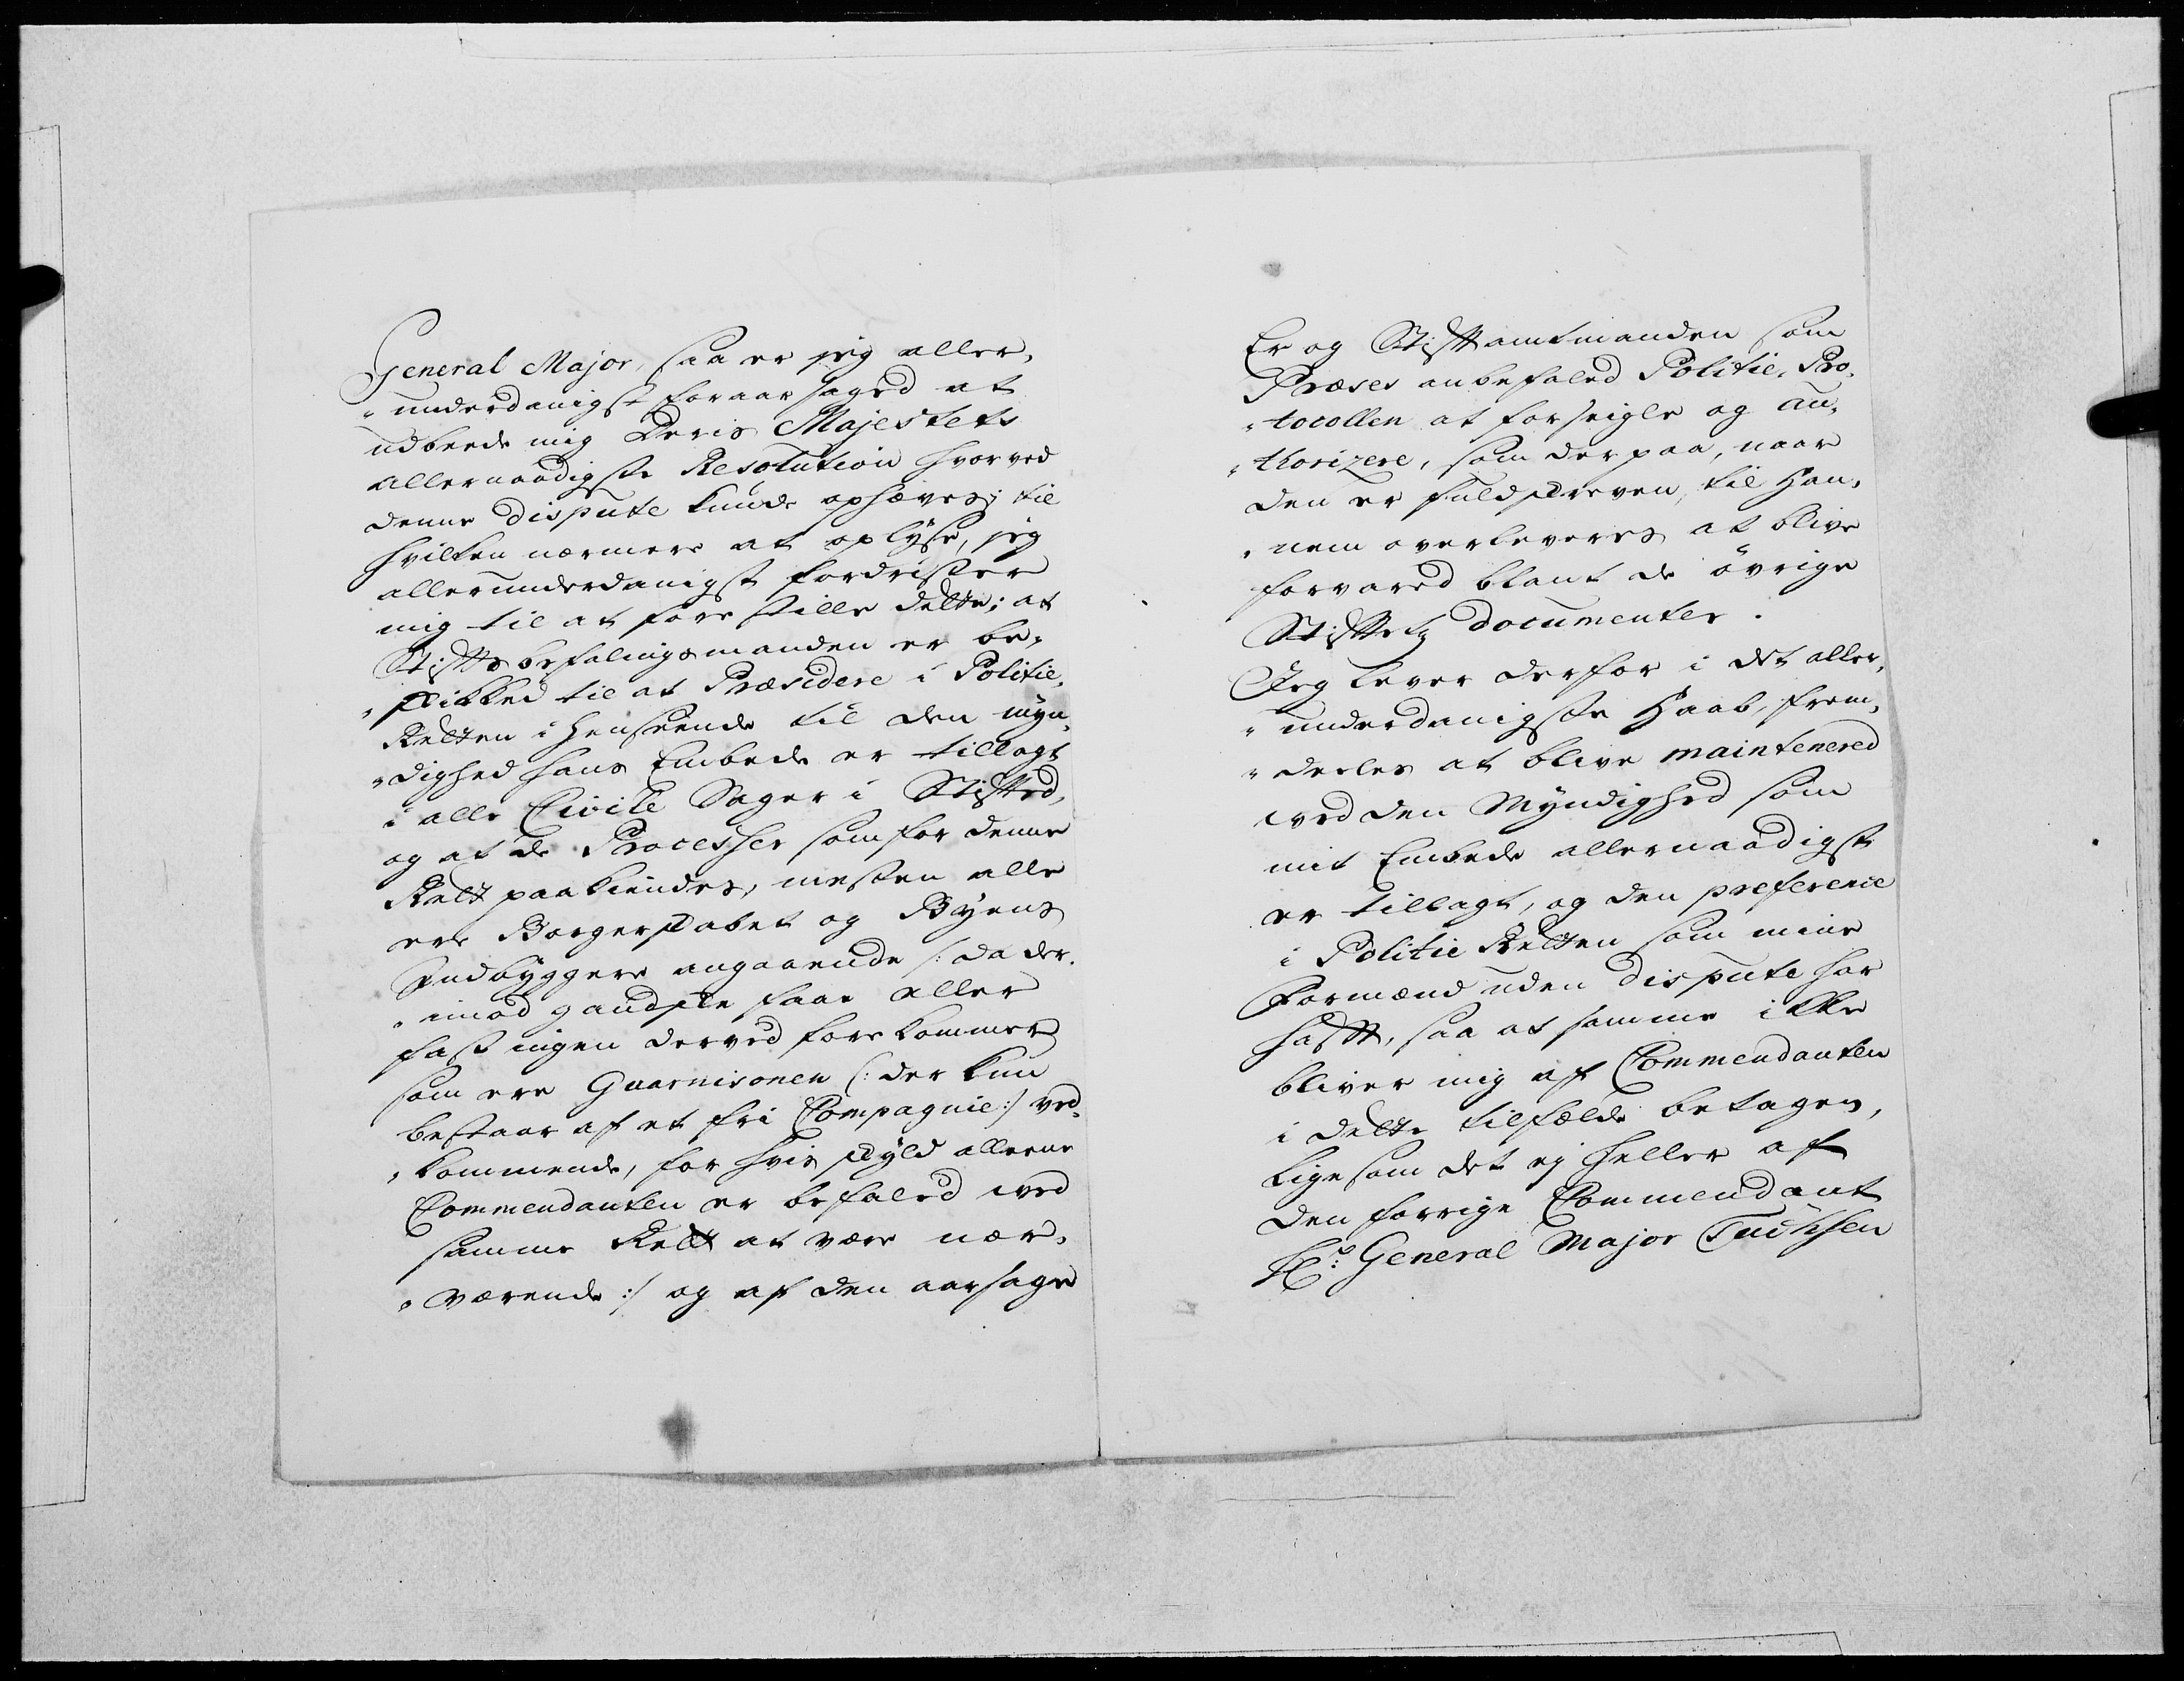 General Major, saa er jeg aller,
"underdanigst foraarsaged at
udbeede mig Deris Majestets
allernaadigste Resolution hvorved
denne dispute kunde ophæves; til
hvilken nærmere at oplyse, jeg
allerunderdanigst fordrister
mig til at forestille dette; at
Stiftsbefalingsmanden er be,
"skikked til at Præsidere i Politie,
Retten i henseende til den myn,
"dighed hans Embede er tillagt
i alle Civile Sager i Stifted,
og at de Processer som for denne
Rett paakiendes, mesten alle
ere Borgerskabet og Byens
Indbyggere angaaende /: da der,
"imod gandske faae eller
fast ingen derved forekommer
som ere Guarnisonen (: der kun
bestaar af et fri Compagnie :/ ved,
"kommende, for hvis skyld alleene
Commendanten er befaled ved
samme Rett at være nær,
"værende :/ og af den aarsage
Er og Stiftamtmanden som
Præses anbefaled Politie, Pro,
"tocollen at forseigle og au,
"thorizere, som derpaa, naar
den er fuldskreven, til han,
"nem overleveres at blive
forvared blant de övrige
Stiftets documenter.
Jeg lever derfor i det aller,
"underdanigste Haab, frem,
"deeles at blive maintenered
ved den Myndighed som
mit Embede allernaadigst
er tillagt, og den preference
i Politie Retten som mine
Formænd uden dispute har
hafft, saa at samme ikke
bliver mig af Commendanten
i dette tilfælde betagen,
ligesom det ej heller af
den forrige Commendant
Hr: General Major Tuchsen